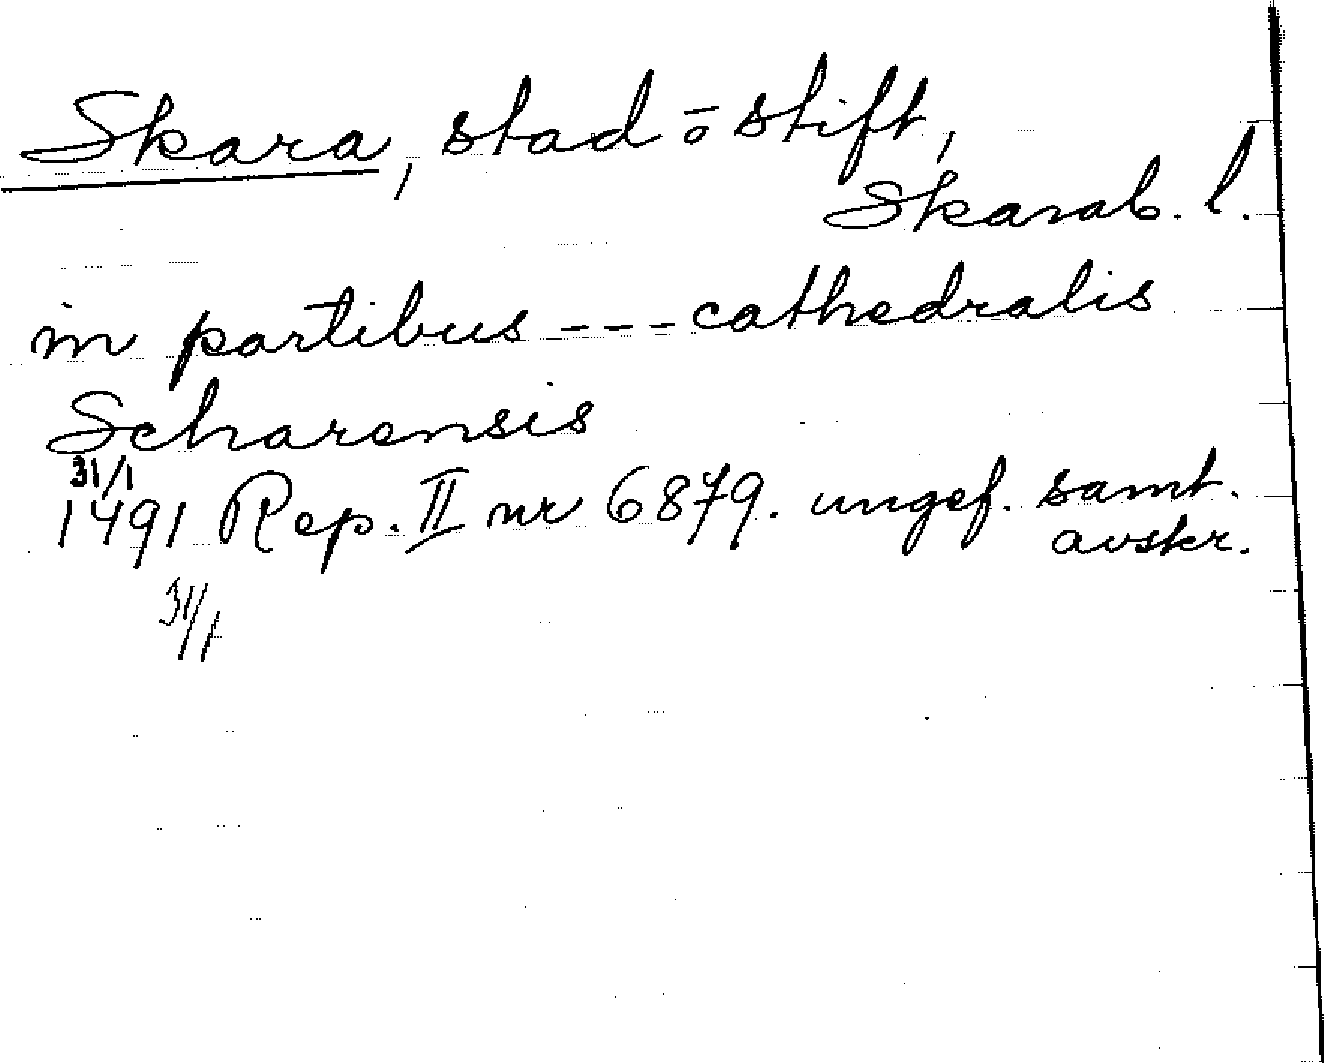 Skara, stad o stift,
Skarab. l.
in partibus --- cathedralis
Scharensis
31/1
1491 Rep. II nr 6879. ungef. samt.
avskr.
31/1